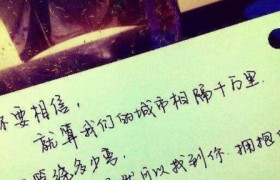 不要相信，
就算我们的城市相隔千万里，
多少弯，
可以找到你，拥抱